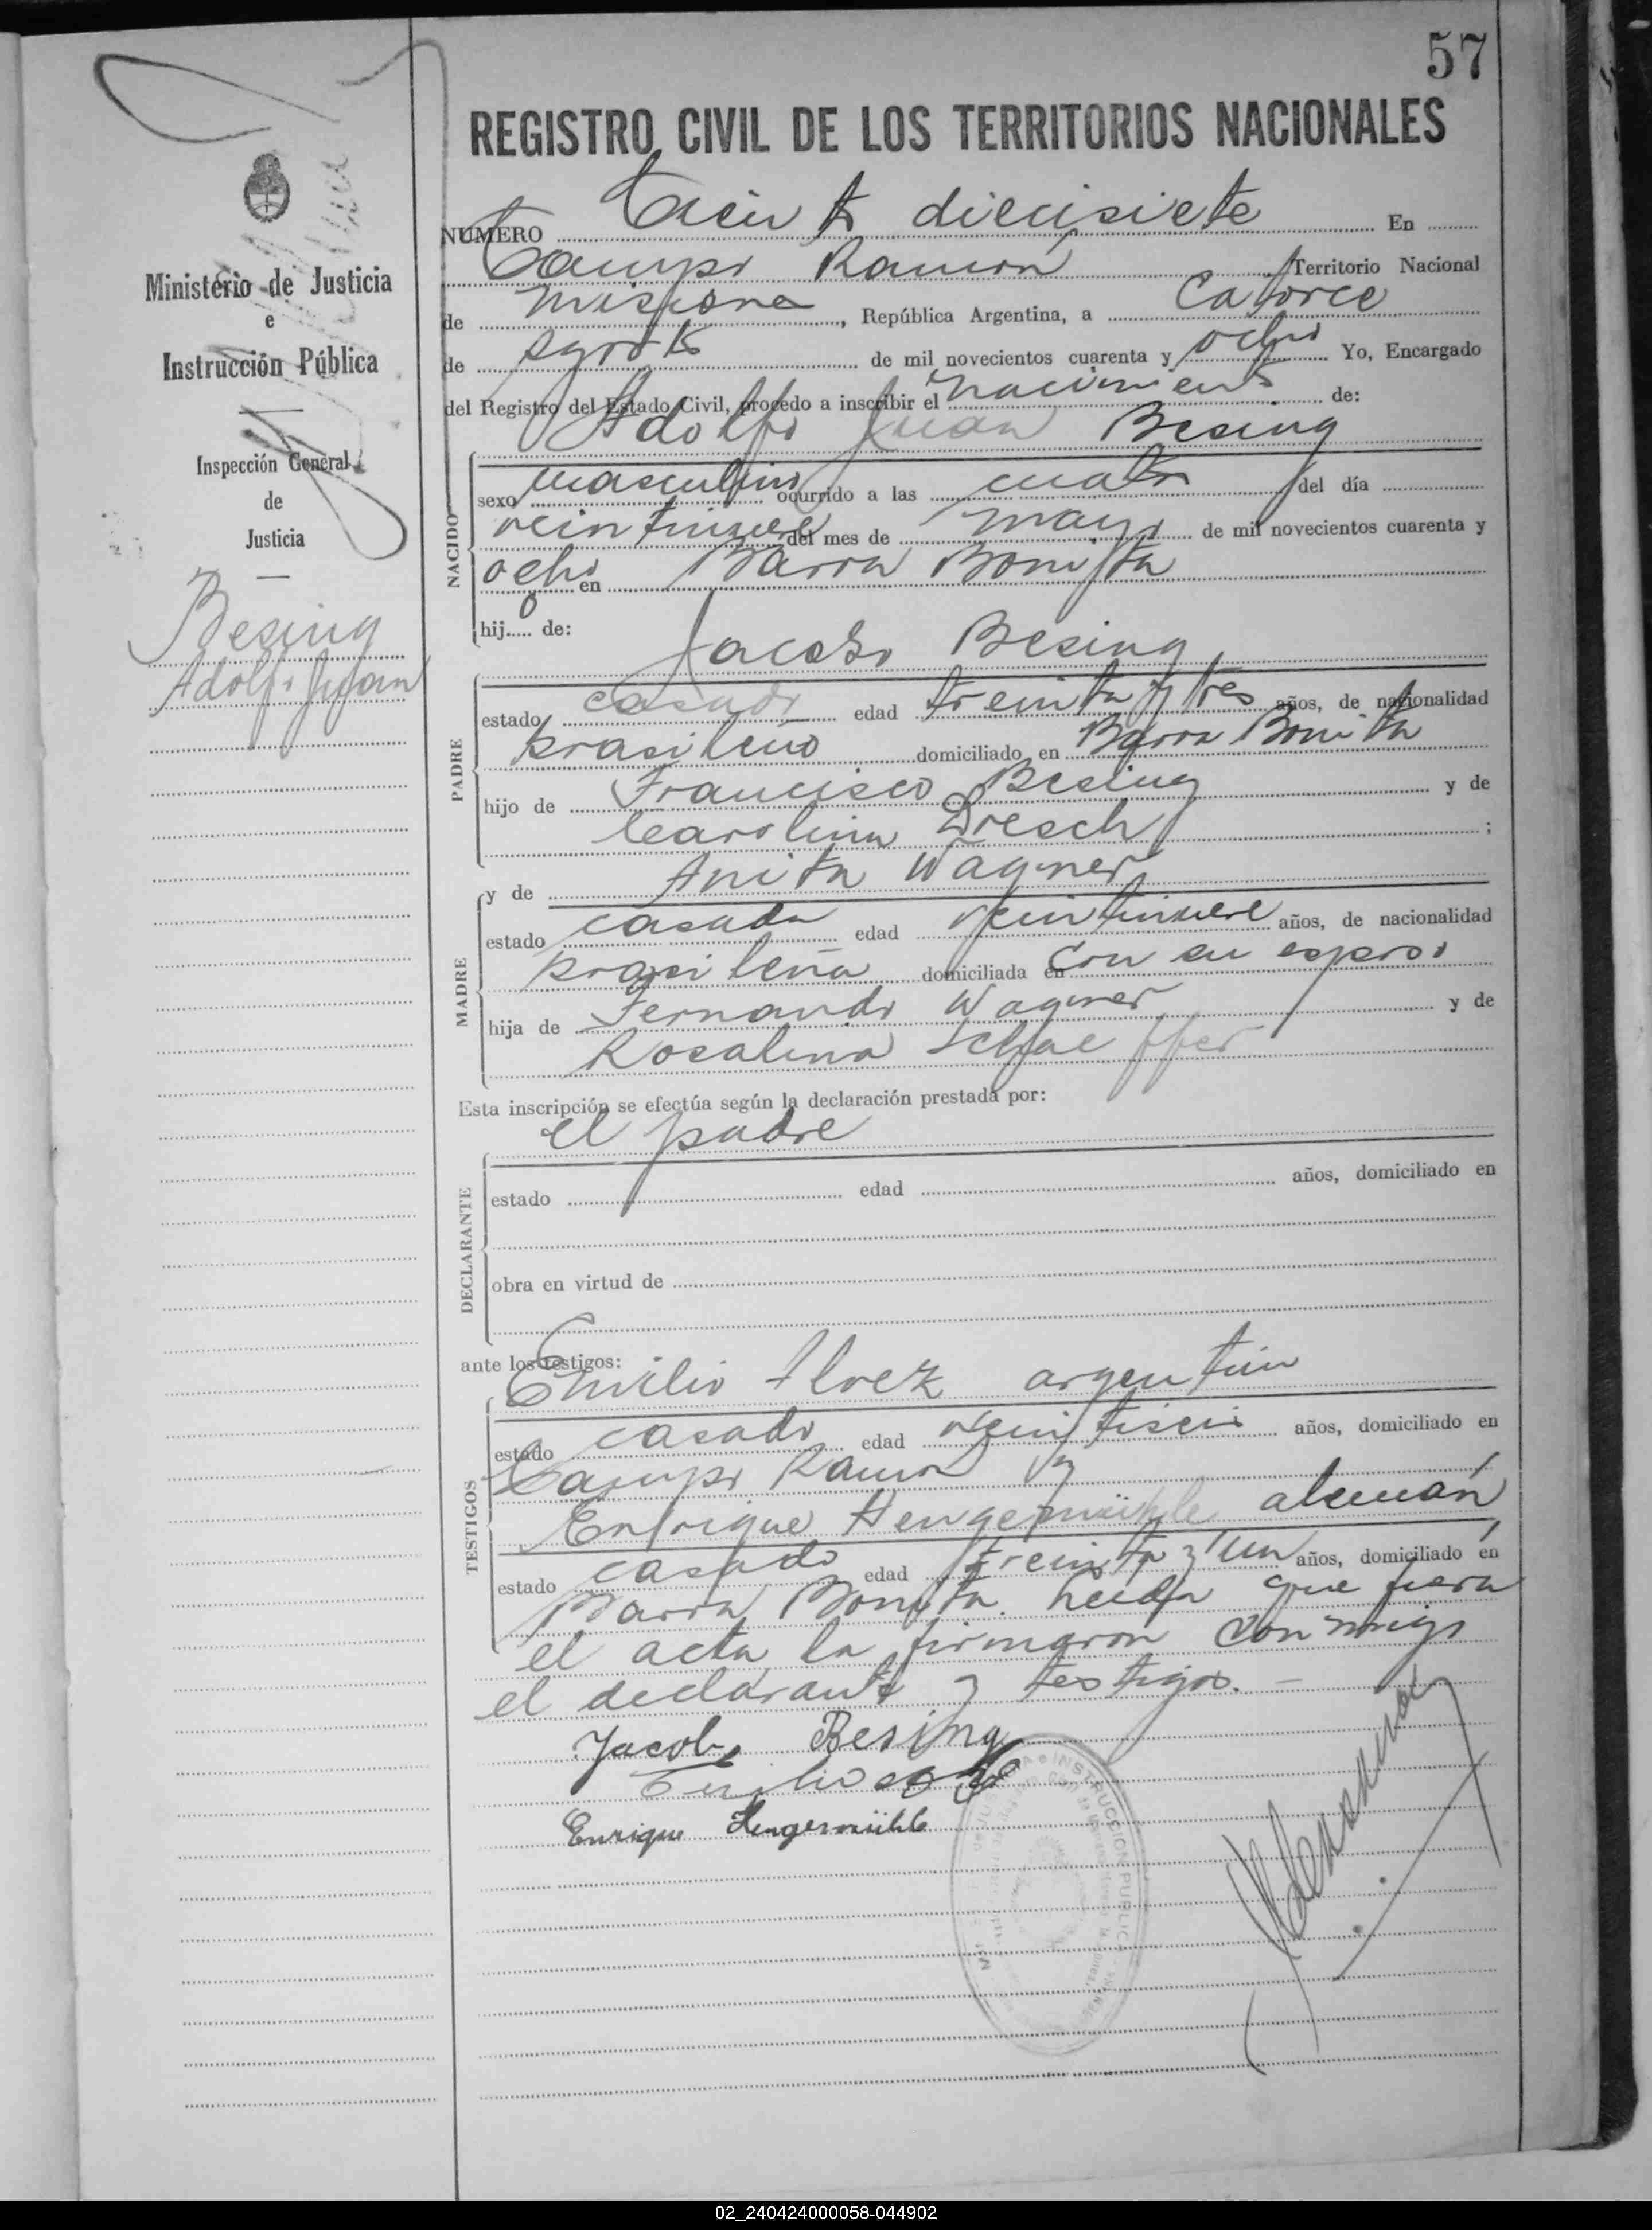 57
REGISTRO CIVIL DE LOS TERRITORIOS NACIONALES
Ministerio de Justicia
e
Instrucción Pública
Inspección General
de
Justicia
Besing
Adolfo Juan
NUMERO Ciento diecisiete En
Campo Ramón Territorio Nacional
de Misiones, República Argentina, a Catorce
de agosto de mil novecientos cuarenta y ocho Yo, Encargado
del Registro del Estado Civil, procedo a inscribir el nacimiento de:
Adolfo Juan Besing
NACIDO
sexo masculino ocurrido a las cuatro del día
veintinueve del mes de mayo de mil novecientos cuarenta y
ocho en Barra Bonita
hijo de:
Jacobo Besing
PADRE
estado casado edad treinta y tres años, de nacionalidad
brasileño domiciliado en Barra Bonita
hijo de Francisco Besing y de
Carolina Dresch ;
y de Anita Wagner
MADRE
estado casada edad veintinueve años, de nacionalidad
brasileña domiciliada en con su esposo
hija de Fernando Wagner y de
Rosalina Schaeffer
Esta inscripción se efectúa según la declaración prestada por:
el padre
DECLARANTE
estado edad años, domiciliado en
obra en virtud de
ante los testigos:
Emilio Alvez argentino
TESTIGOS
estado casado edad veintiseis años, domiciliado en
Campo Ramón y
Enrique Hengemühle alemán
estado casado edad treinta y un años, domiciliado en
Barra Bonita. Leida que fuera
el acta la firmaron conmigo
el declarante y testigos. —
Jacob Besing
Emilio
Enrique Hengemühle
INSTRUCCION PUBLICA
02_240424000058-044902